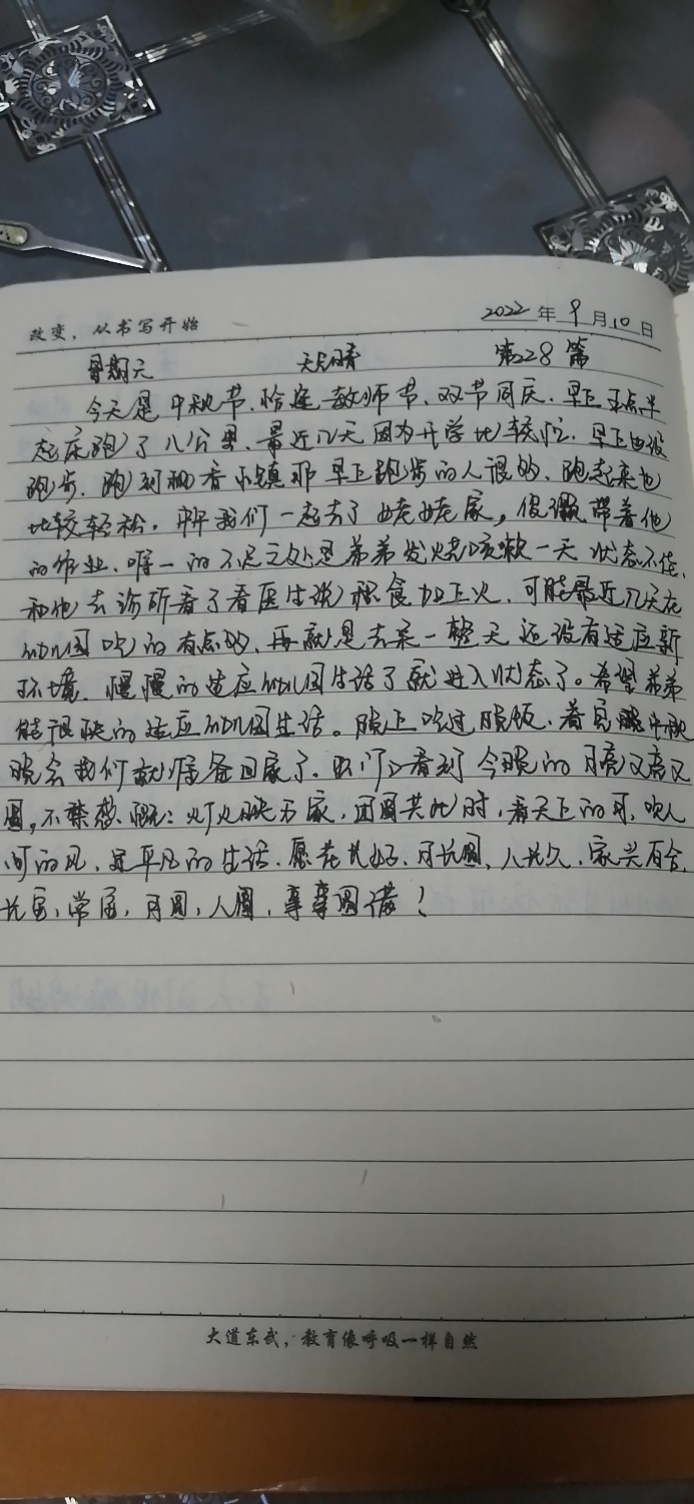 改变，从书写开始
2022年9月10日
星期六 天气晴 第228篇
今天是中秋节.恰逢教师节.双节同庆.早上五点半
起床跑了八公里.最近几天因为开学比较忙.早上没
跑步.跑到 香小镇那早上跑步的人很多.跑起来也
比较轻松.中午我们一起去了姥姥家,俊 带着他
的作业.唯一的不足之处是弟弟发烧咳嗽一天状态不佳.
和他去诊所看了看医生说积食加上火.可能最近几天在
幼儿园吃的有点多.再就是去呆一整天还没有适应新
环境.慢慢的适应幼儿园生活了就进入状态了。希望弟弟
能很快的适应幼儿园生活。晚上吃过晚饭.看完 中秋
晚会我们就准备回家了. 看到今晚的月亮又高又
圆,不禁感慨:灯火映万家.团圆共此时,看天上的月.吹人
间的风.是平凡的生活.愿花长好.月长圆.人长久.家兴百合.
月圆,人圆,事事圆满!
大道东武，教育像呼吸一样自然